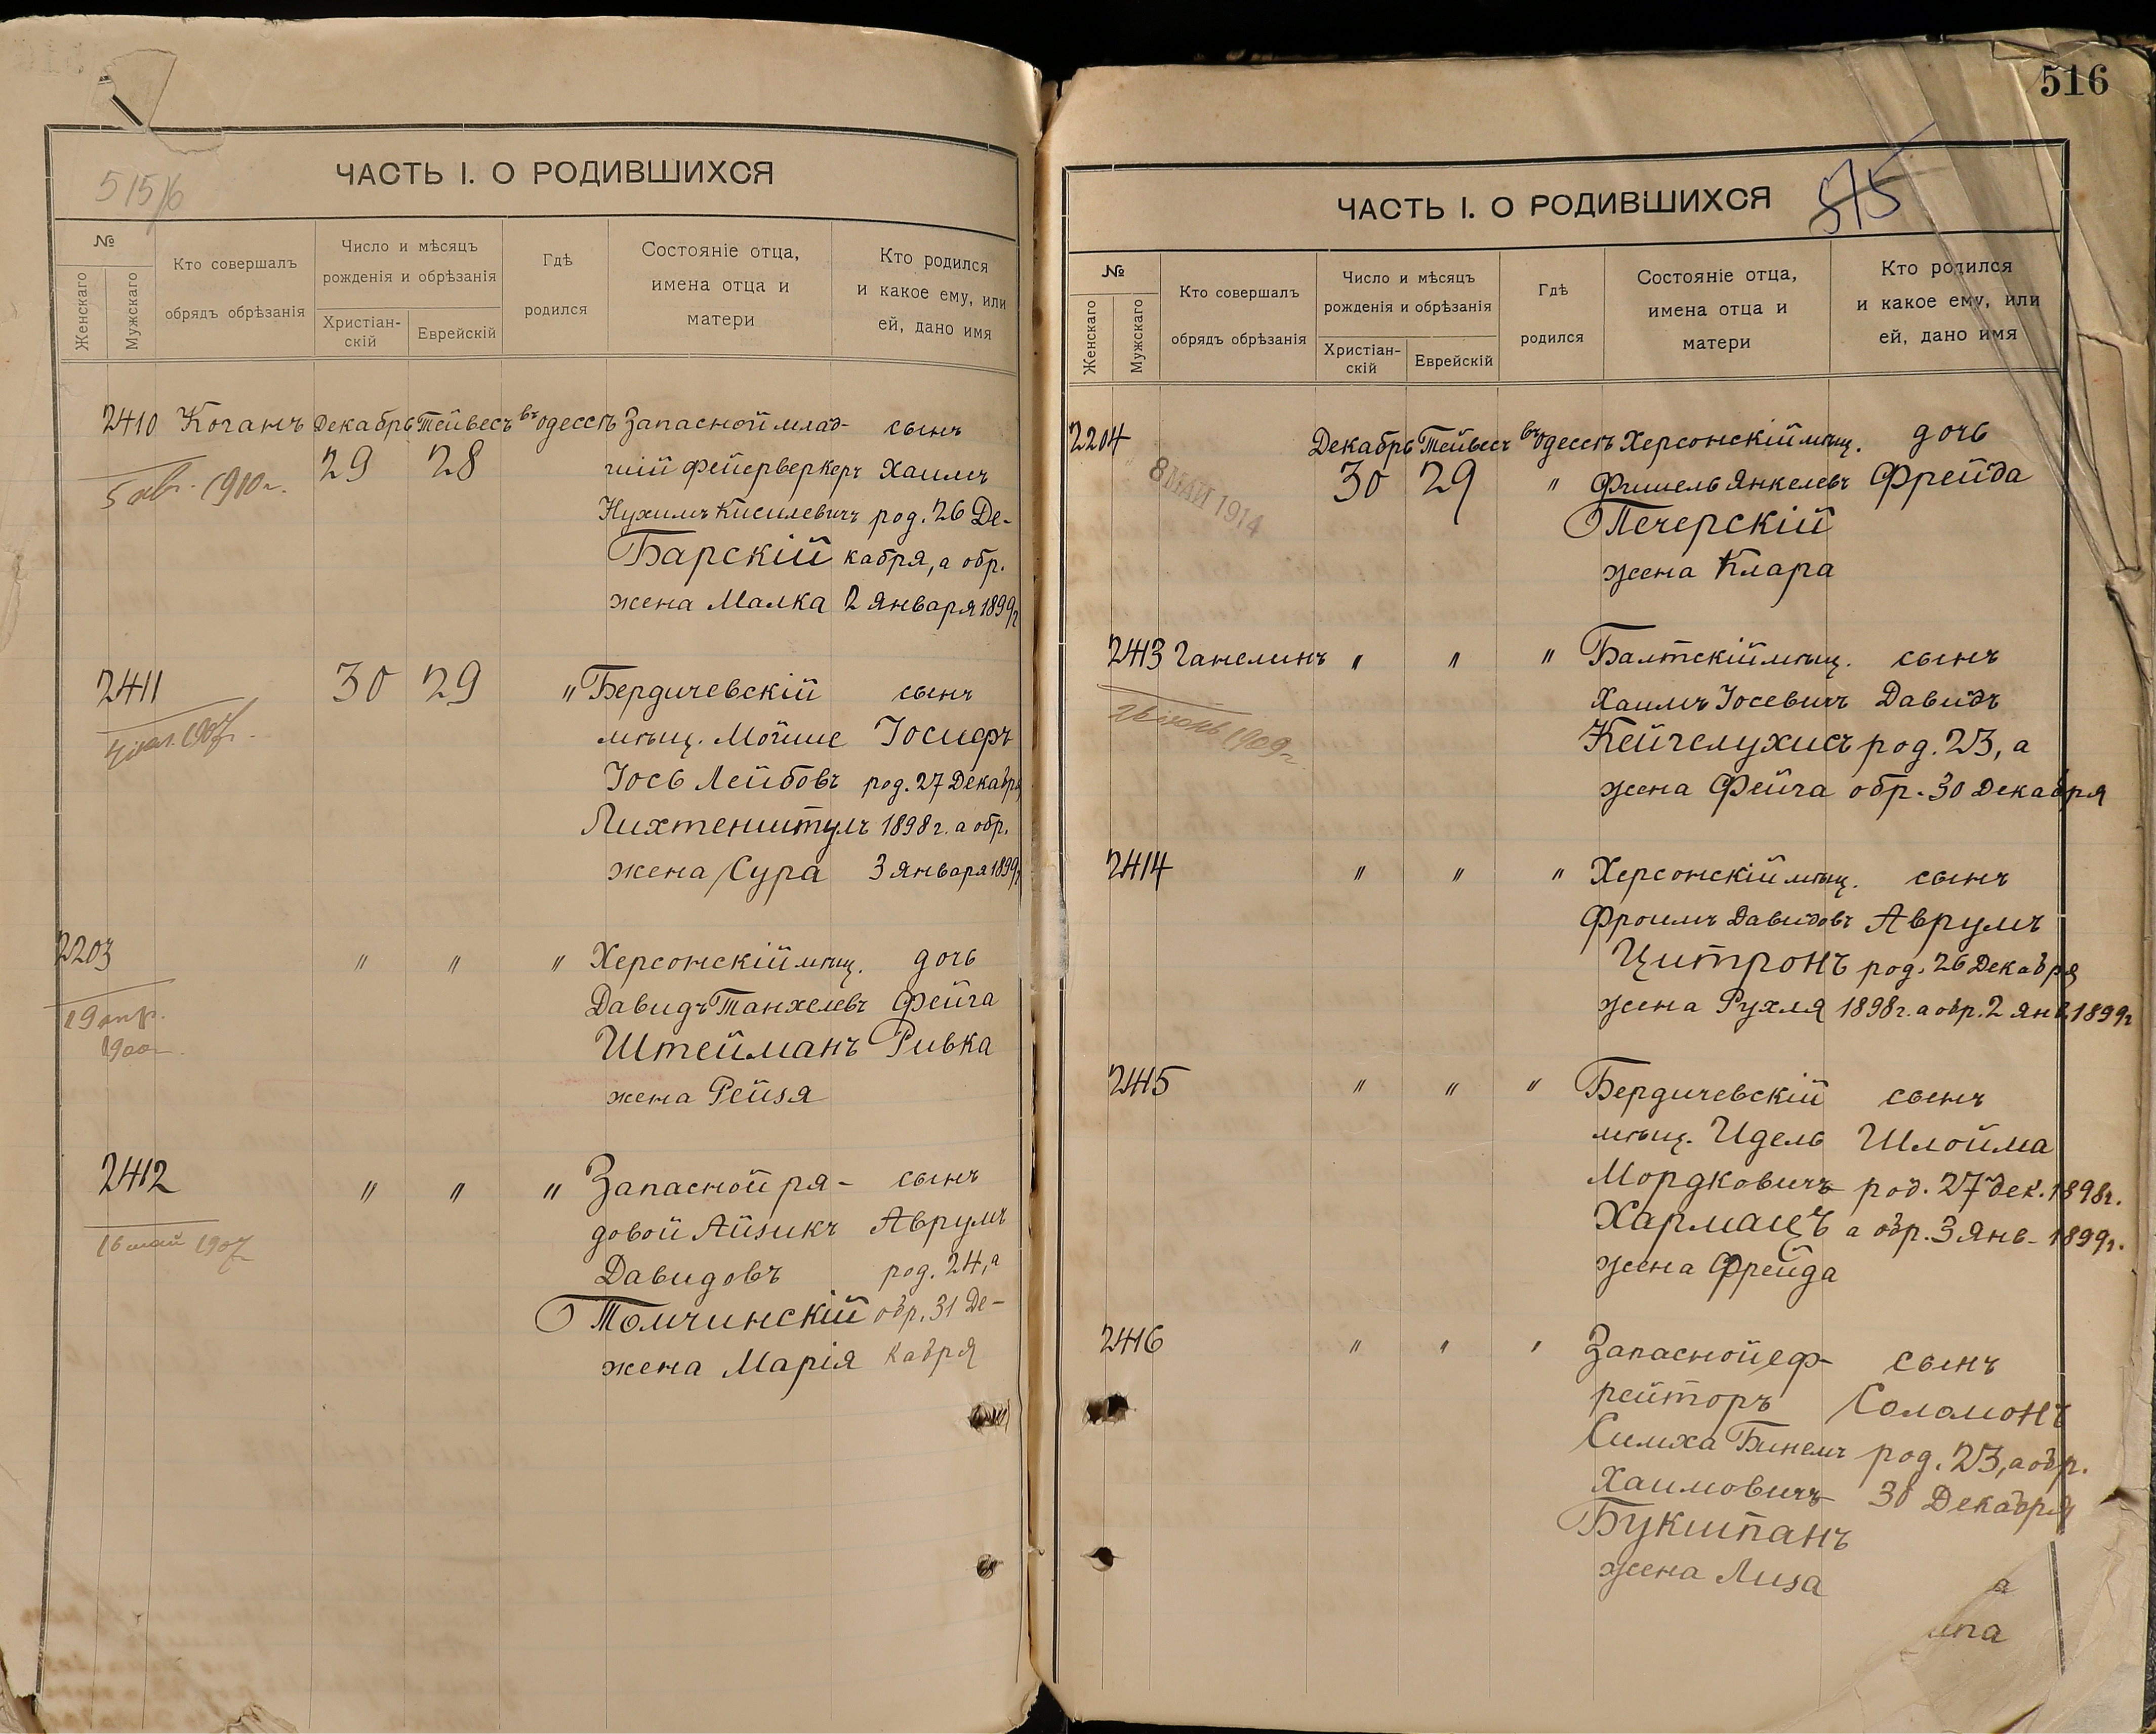 516
ЧАСТЬ I. О РОДИВШИХСЯ
515/6
№
Женскаго
Мужскаго
Кто совершалъ
обрядъ обрѣзанія
Число и мѣсяцъ
рожденія и обрѣзанія
Христіан-
скій
Еврейскій
Гдѣ
родился
Состояніе отца,
имена отца и
матери
Кто родился
и какое ему, или
ей, дано имя
2410 Коганъ Декабрь Тейвесъ въ Одессѣ Запасной млад- сынъ
29 28 шій фейерверкеръ Хаимъ
5 авг. 1910 г.
Нухимъ Кисилевичъ род. 26 Де-
Барскій кабря, а обр.
жена Малка 2 Января 1899 г
2411 30 29 " Бердичевскій сынъ
1907 г.
мѣщ. Мойше Іосифъ
Іось Лейбовъ род. 27 Декабря
Лихтенштулъ 1898 г. а обр.
жена Сура 3 Января 1899 г
2203 " " " Херсонскій мѣщ. дочь
19 апр.
1900
Давидъ Танхелевъ Фейга
Штейманъ Ривка
жена Рейзя
2412 " " " Запасной ря- сынъ
16 май 1907
довой Айзикъ Аврумъ
Давидовъ род. 24, а
Томчинскій обр. 31 Де-
жена Марія кабря
ЧАСТЬ I. О РОДИВШИХСЯ
515
№
Женскаго
Мужскаго
Кто совершалъ
обрядъ обрѣзанія
Число и мѣсяцъ
рожденія и обрѣзанія
Христіан-
скій
Еврейскій
Гдѣ
родился
Состояніе отца,
имена отца и
матери
Кто родился
и какое ему, или
ей, дано имя
2204 Декабрь Тейвесъ въ Одессѣ Херсонскій мѣщ. дочь
8 МАЙ 1914
30 29 " Фишель Янкелевъ Фрейда
Печерскій
жена Клара
2413 Ганелинъ " " " Балтскій мѣщ. сынъ
26 іюнь 1909 г.
Хаимъ Іосевичъ Давидъ
Кейгелухисъ род. 23, а
жена Фейга обр. 30 Декабря
2414 " " " Херсонскій мѣщ. сынъ
Фроимъ Давидовъ Аврумъ
Цитронъ род. 26 Декабря
жена Рухля 1898 г. а обр. 2 янв. 1899 г
2415 " " " Бердичевскій сынъ
мѣщ. Идель Шлойма
Мордковичъ род. 27 дек. 1898 г.
Хармацъ а обр. 3 Янв. 1899 г.
жена Фрейда
2416 " " " Запасной еф- сынъ
рейторъ Соломонъ
Симха Бинемъ род. 23, а обр.
Хаимовичъ 30 Декабря
Букштанъ
жена Лиза